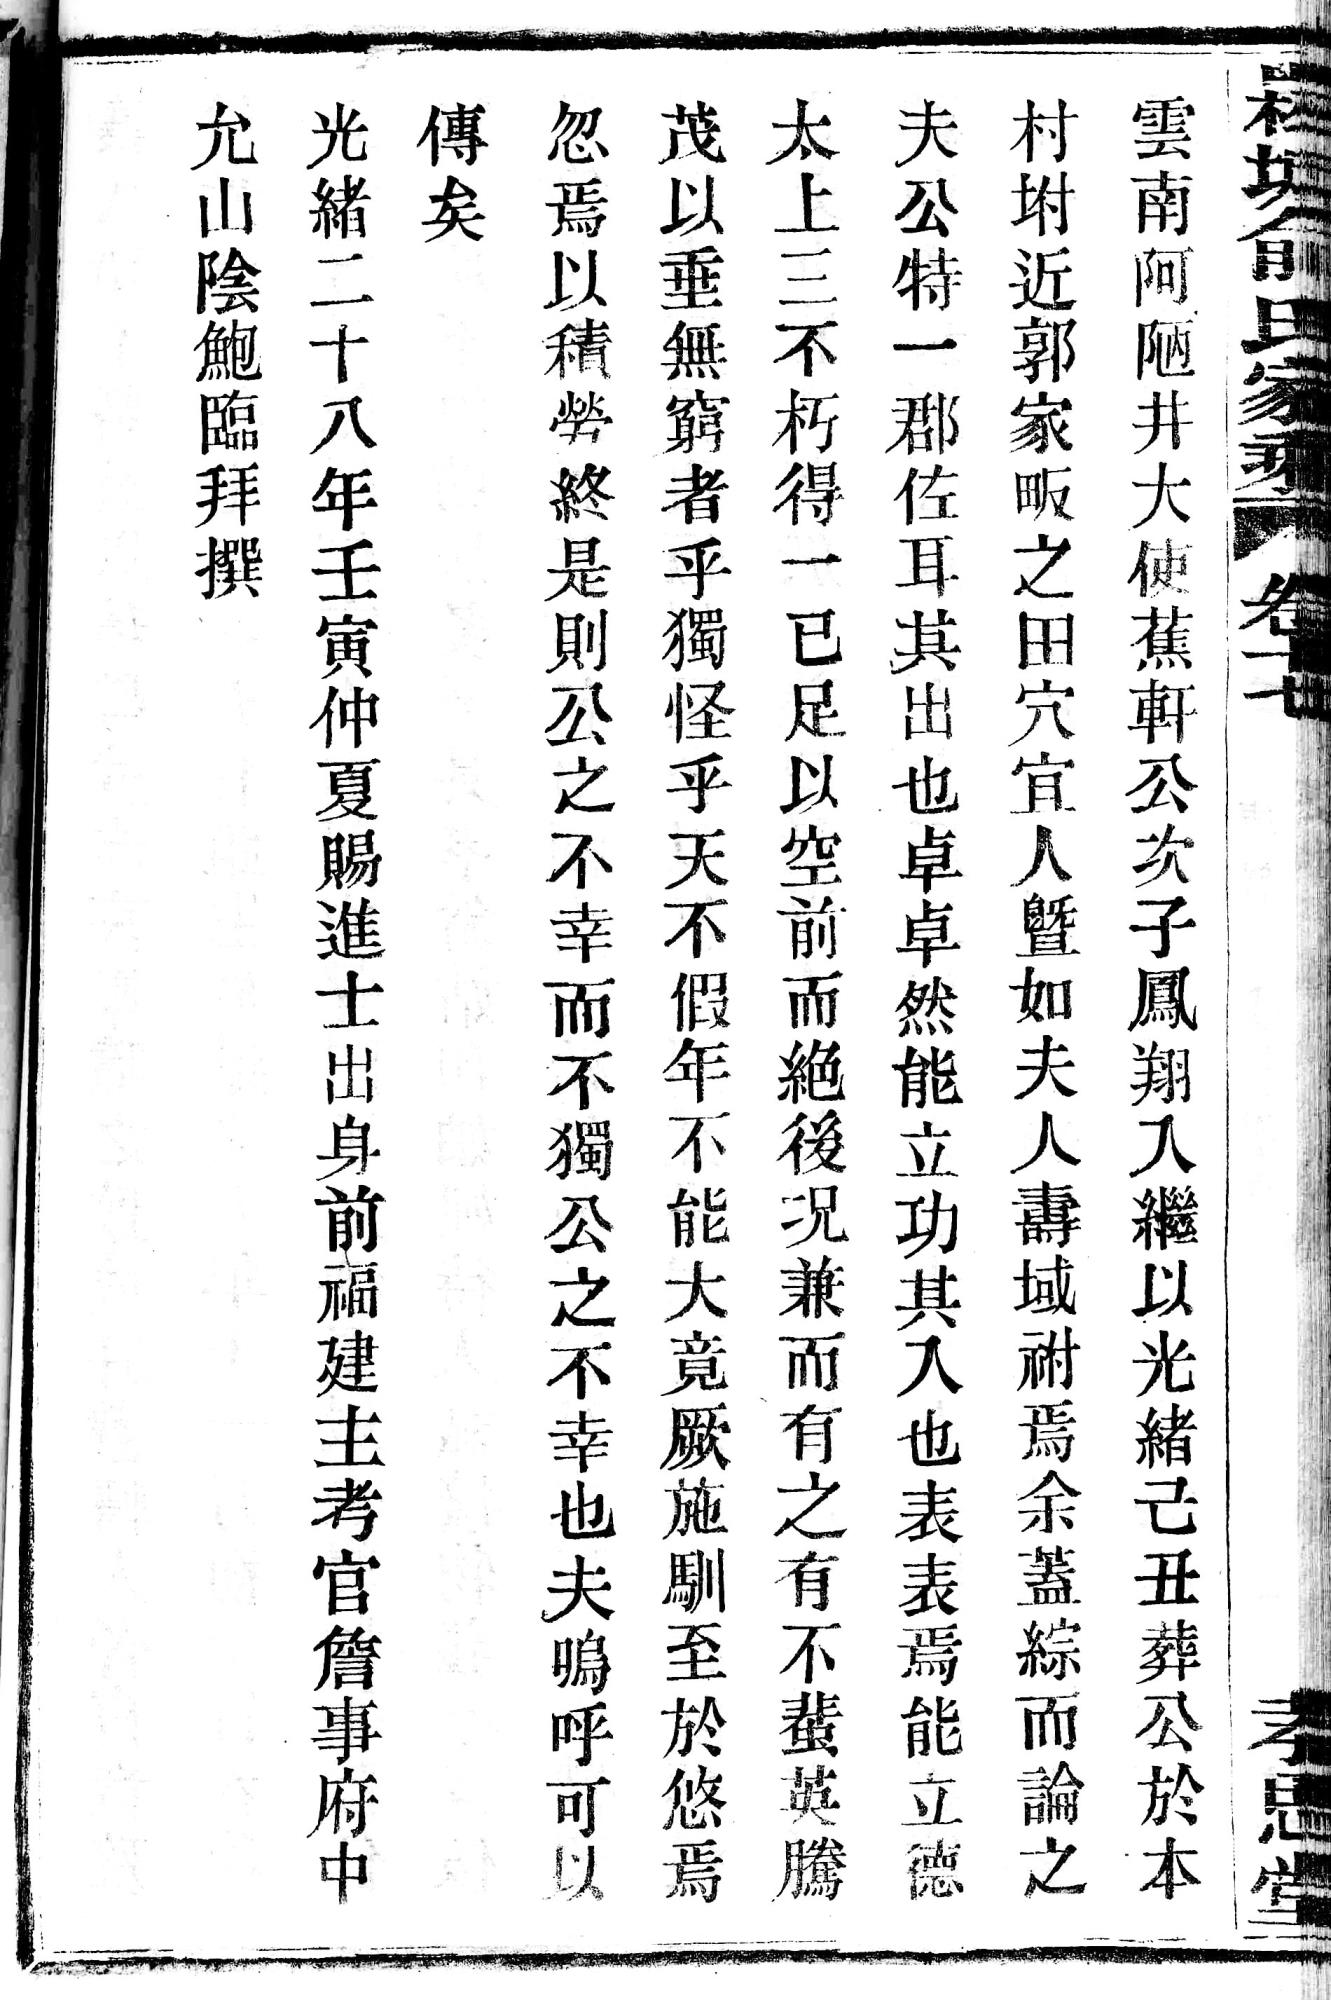 氏家乘 卷十七 孝思堂
雲南阿陋井大使蕉軒公次子鳳翔入繼以光緒己丑葬公於本
村坿近郭家畈之田穴宜人曁如夫人壽域祔焉余蓋綜而論之
夫公特一郡佐耳其出也卓卓然能立功其入也表表焉能立德
太上三不朽得一已足以空前而絶後况兼而有之有不蜚英騰
茂以垂無窮者乎獨怪乎天不假年不能大竟厥施馴至於悠焉
忽焉以積勞終是則公之不幸而不獨公之不幸也夫嗚呼可以
傳矣
光緒二十八年壬寅仲夏賜進士出身前福建主考官詹事府中
允山陰鮑臨拜撰